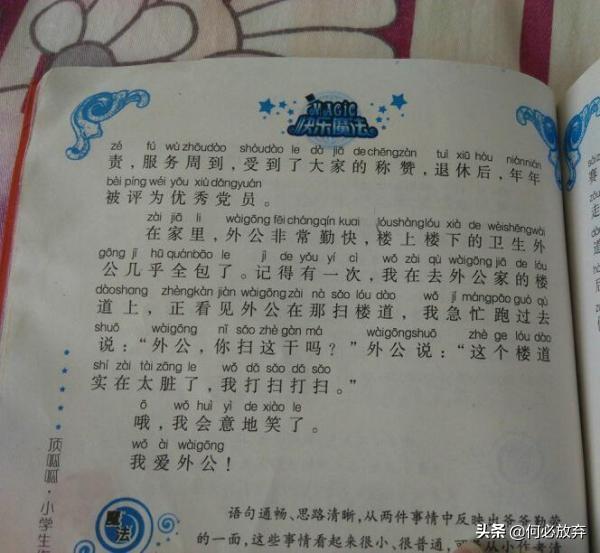 MAGIC
快乐魔法
zé fú wù zhōudào shòudào le dà jiā de chēngzàn tuì xiū hòu niánnián
责，服务周到，受到了大家的称赞，退休后，年年
bèi píng wéi yōu xiù dǎngyuán
被评为优秀党员。
zài jiā li wàigōng fēi chángqín kuai lóushànglóu xià de wèishēngwài
在家里，外公非常勤快，楼上楼下的卫生外
gōng jī hū quánbāo le jì de yǒu yí cì wǒ zài qù wàigōng jiā de lóu
公几乎全包了。记得有一次，我在去外公家的楼
dàoshang zhèngkàn jiàn wàigōng zài nà sǎo lóu dào wǒ jí mángpǎo guò qù
道上，正看见外公在那扫楼道，我急忙跑过去
shuō wàigōng nǐ sǎo zhè gàn má wàigōngshuō zhè ge lóu dào
说：“外公，你扫这干吗？”外公说：“这个楼道
shí zài tài zāng le wǒ dǎ sǎo dǎ sǎo
实在太脏了，我打扫打扫。”
ō wǒ huì yì de xiào le
哦，我会意地笑了。
wǒ ài wàigōng
我爱外公！
顶呱呱·小学生
魔法
语句通畅、思路清晰，从两件事情中反映出爷爷勤劳
的一面，这些事情看起来很小、很普通，可
头条 @何必放弃